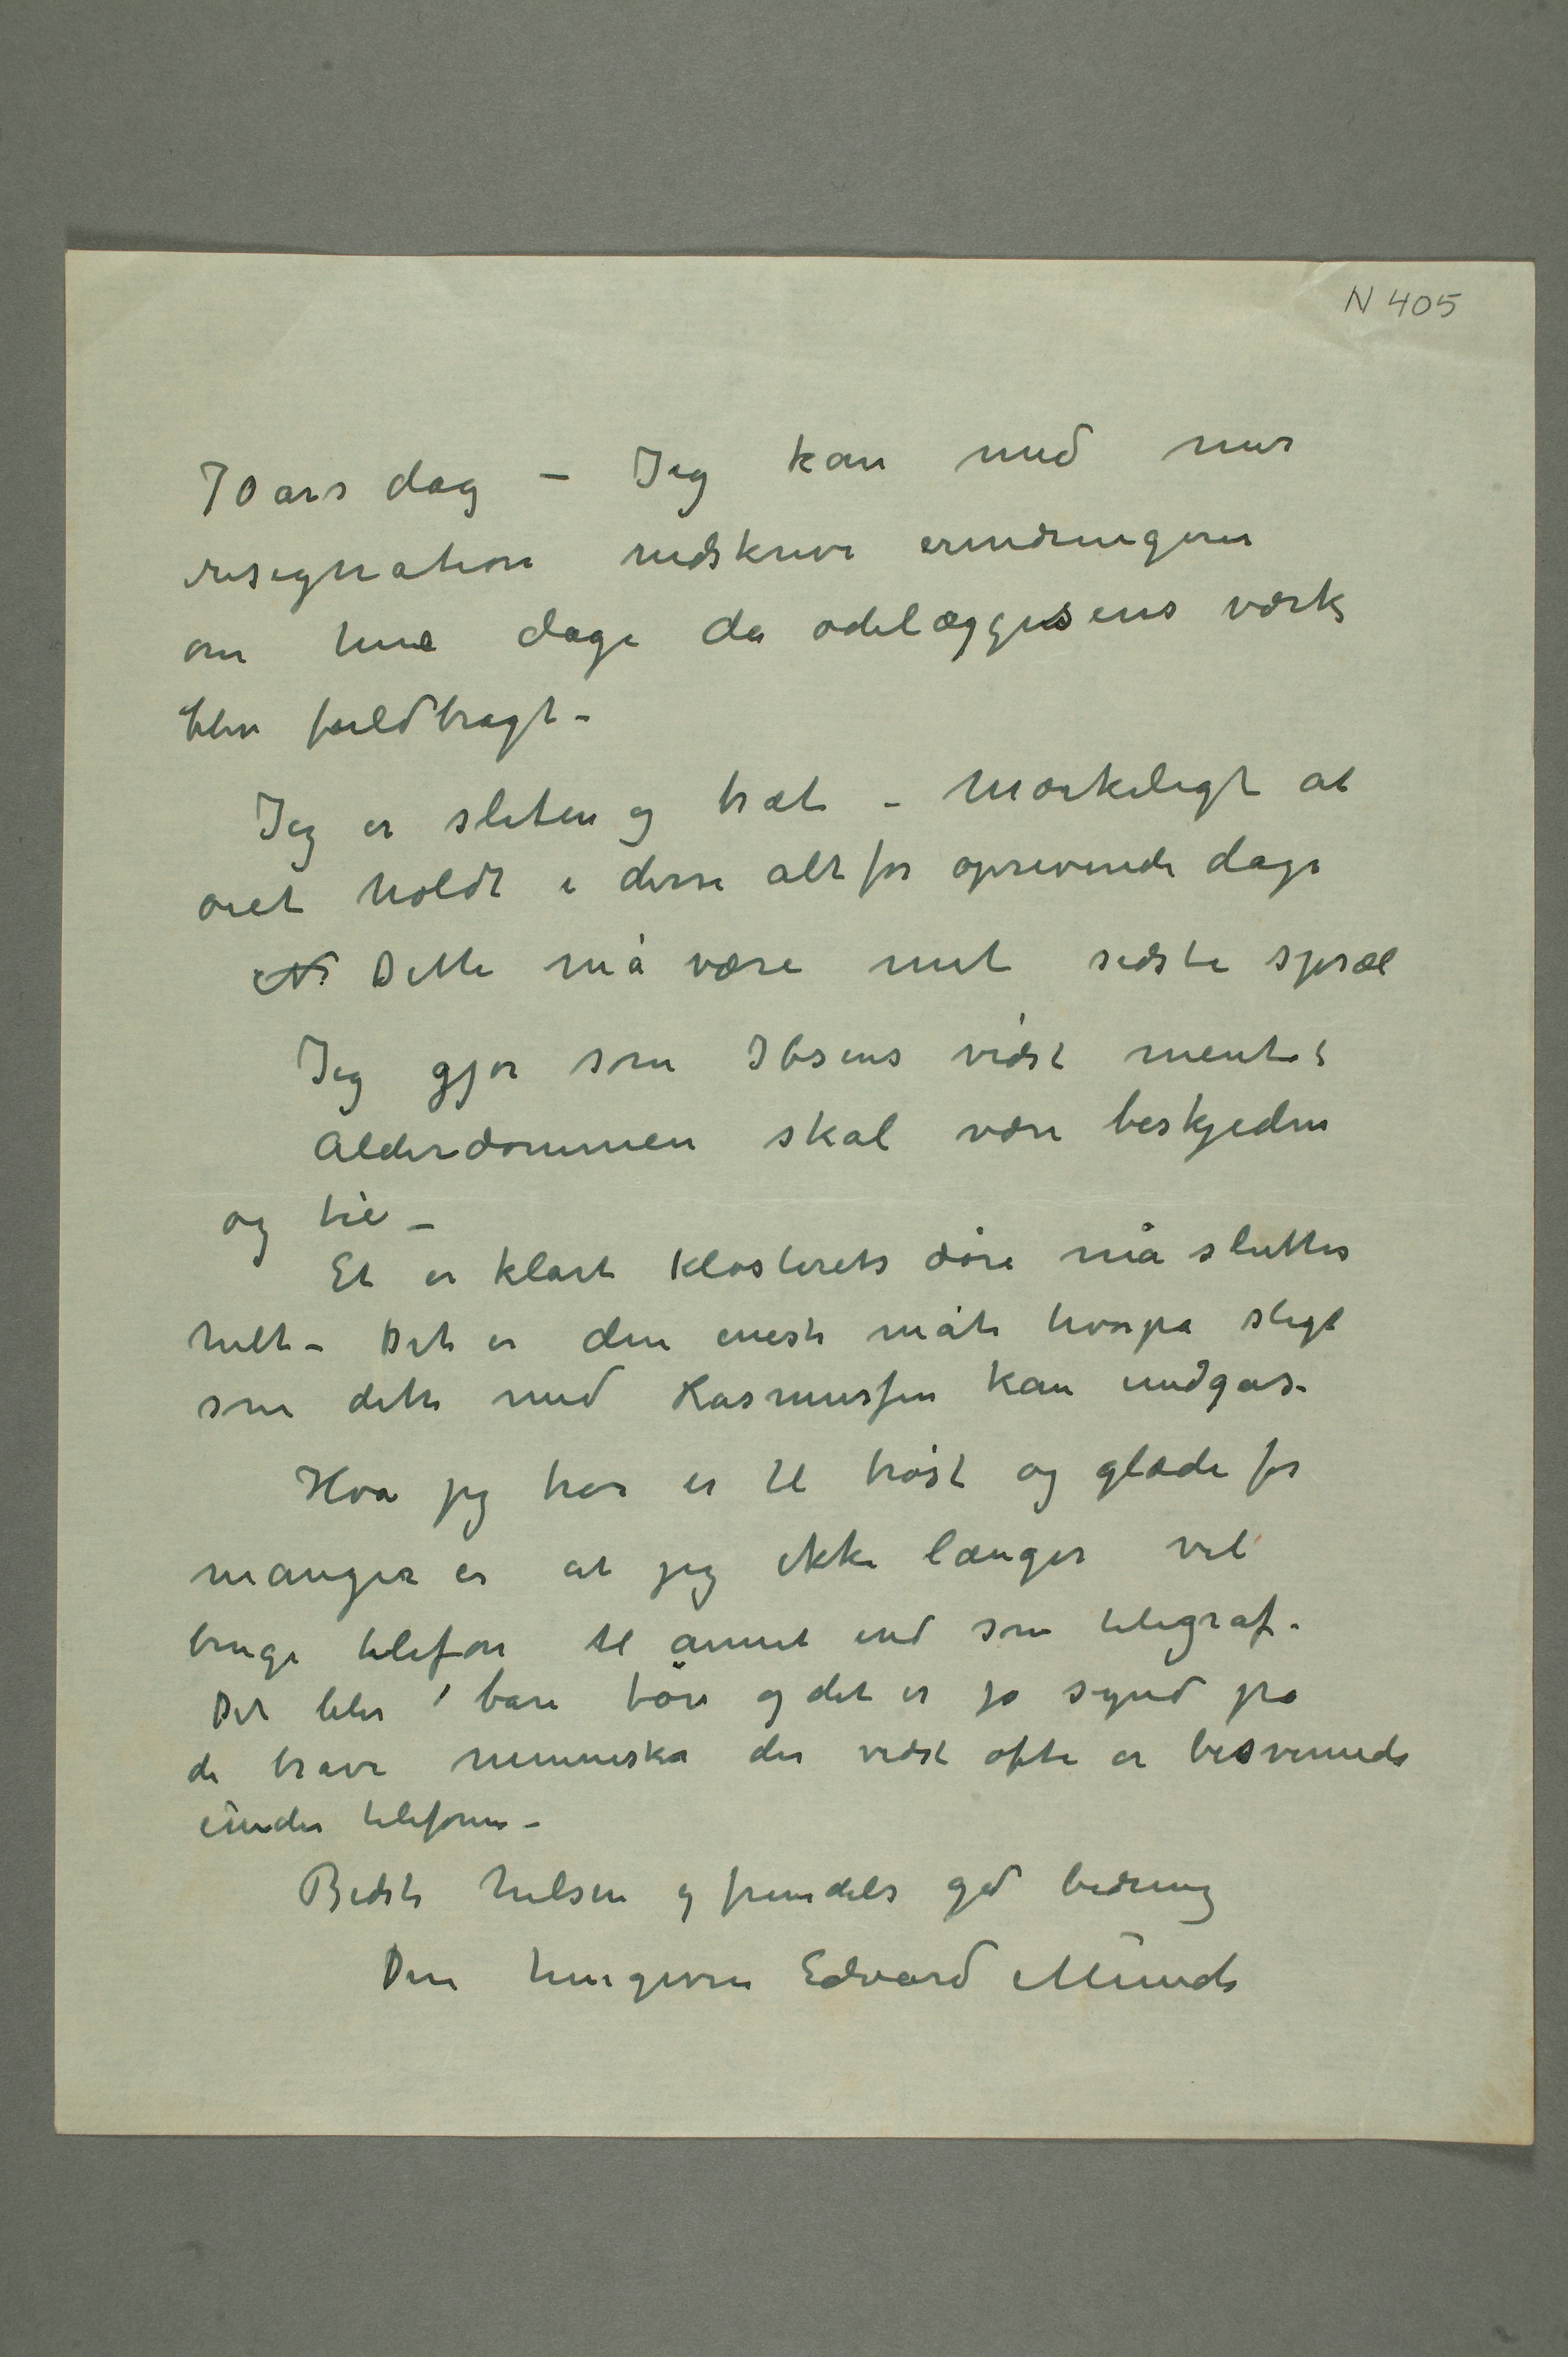 N 405
70 års dag – Jeg kan med mer
resignation nedskrive erindringerne
om hine dage da ødelæggelsens værk
blev fuldbragt –
Jeg er sliten og træt – Mærkeligt at
øiet holdt i disse alt for oprivende dage
Dette må være mit sidste spræl
Jeg gjør som Ibsens vidst mente:
Alderdommen skal være beskjeden
og tie –
Et er klart Klosterets døre må sluttes
helt – Det er den eneste måte hvorpå sligt
som dette med Rasmussen kan undgåes.
Hva jeg tror er til trøst og glæde for
mange er at jeg ikke længer vil
bruge telefon til annet end som telegraf.
Det blir bare tøv og det er jo synd på
de brave menneske der vidst ofte er besvimede
under telefonen –
Bedste hilsen og fremdeles god bedring
Din hengivne Edvard Munch